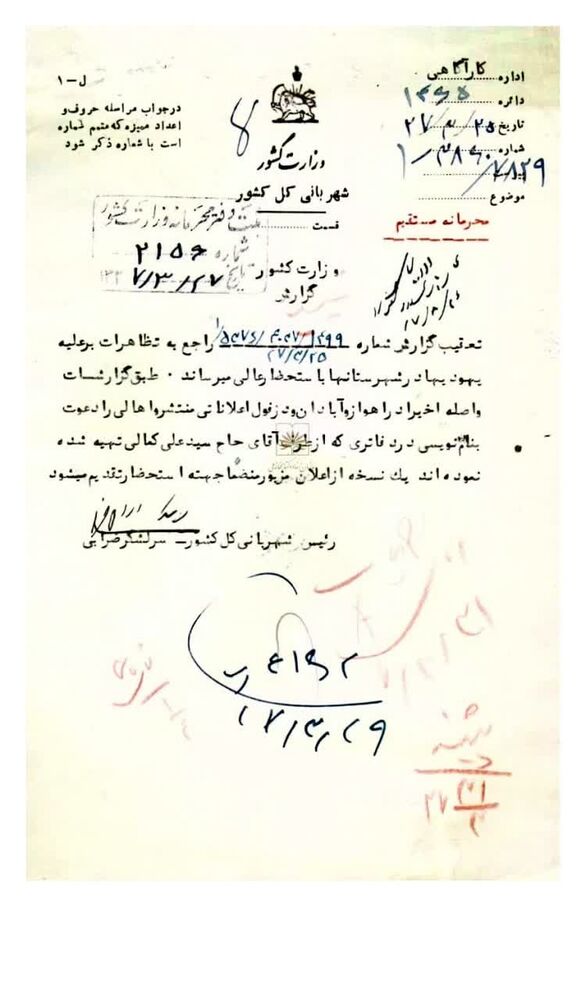 ل-۱
در جواب مراسله حروف و
اعداد ممیزه که متمم شماره
است با شماره ذکر شود
وزارت کشور
شهربانی کل کشور
قسمت
اداره کارآگاهی
دائره
تاریخ ۲۷/۳/۲۵
شماره
موضوع
محرمانه مستقیم
ثبت دفتر محرمانه وزارت کشور
شماره ۲۱۵۶
تاریخ ۲۷/۳/۲۷
وزارت کشور
گزارش
تعقیب گزارش شماره راجع به تظاهرات برعلیه
۲۷/۳/۲۵
یهود یهادر شهرستانها باستحضارعالی میرساند ۰ طبق گزارشات
واصله اخیرا در اهواز و آبادان و دزفول اعلاناتی منتشر و اهالی را دعوت
بنام نویسی در دفاتری که از طرف آقای حاج سید علی کمالی تهیه شده
نموده اند یك نسخه از اعلان مزبور منضماً جهته استحضار تقدیم میشود
رئیس شهربانی کل کشور - سرلشگر ضرابی
۲۷/۳/۲۹